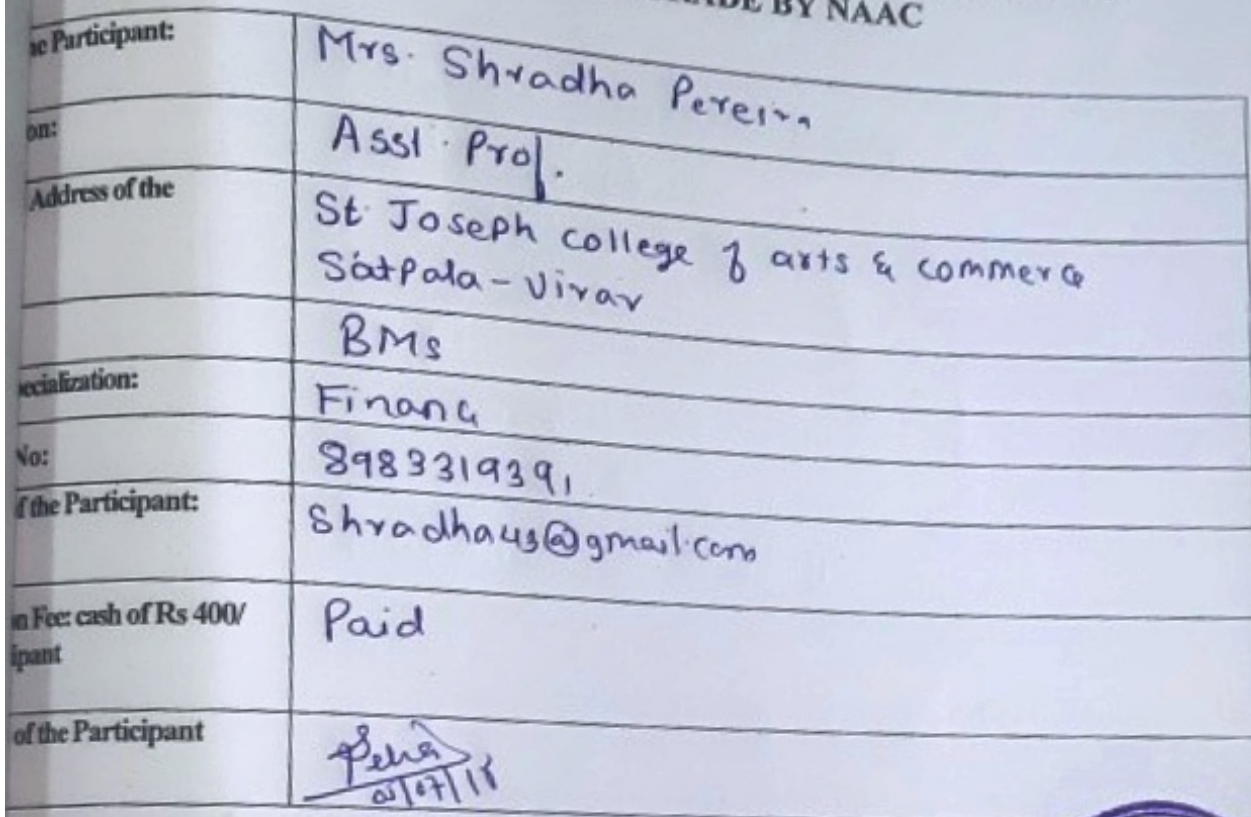 BY NAAC
Participant:
Mrs. Shradha Pereira
on:
Asst. Prof.
Address of the
St. Joseph college of arts & commerce
Satpala - Virar
BMS
ecialization:
Finance
No:
8983319391
f the Participant:
Shradha43@gmail.com
n Fee: cash of Rs 400/
ipant
Paid
of the Participant